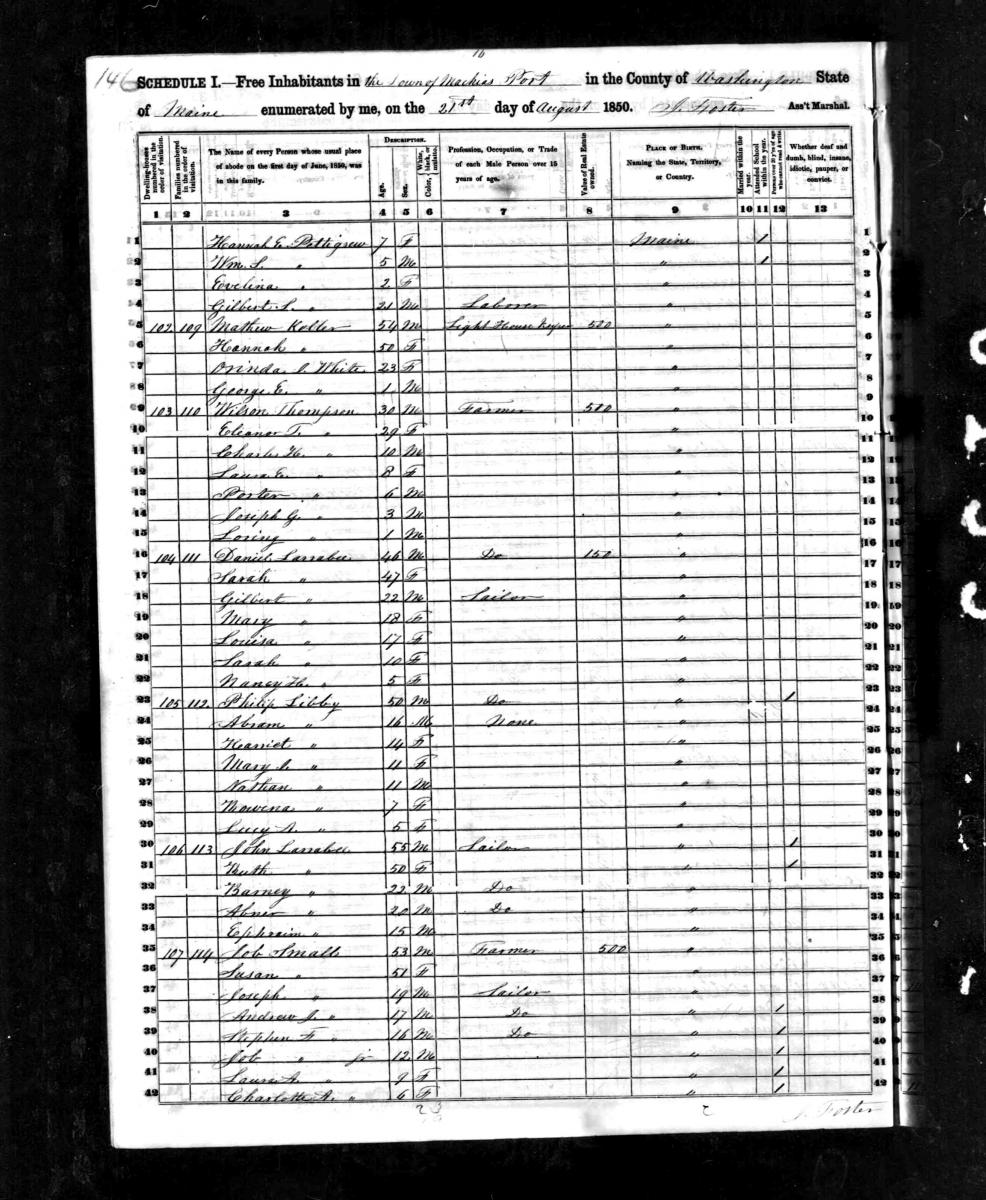 16
146 SCHEDULE I.—Free Inhabitants in the Town of Machias Port in the County of Washington State
of Maine enumerated by me, on the 21st day of August 1850. J. Foster Ass't Marshal.
Dwelling-houses numbered in the order of visitation. Families numbered in the order of visitation. The Name of every Person whose usual place of abode on the first day of June, 1850, was in this family. DESCRIPTION. Age. Sex. Color, White, black, or mulatto. Profession, Occupation, or Trade of each Male Person over 15 years of age. Value of Real Estate owned. PLACE OF BIRTH. Naming the State, Territory, or Country. Married within the year. Attended School within the year. Persons over 20 y'rs of age who cannot read & write. Whether deaf and dumb, blind, insane, idiotic, pauper, or convict.
1 2 3 4 5 6 7 8 9 10 11 12 13
1 Hannah E. Pettigrew 7 F Maine 1 1
2 Wm. S. " 5 M " 1 2
3 Evelina " 2 F " 3
4 Gilbert L. " 21 M Laborer " 4
5 102 109 Mathew Keller 54 M Light House Keeper 500 " 5
6 Hannah " 50 F " 6
7 Orinda White 23 F " 7
8 George E. " 1 M " 8
9 103 110 Wilson Thompson 30 M Farmer 500 " 9
10 Eleanor T. " 29 F " 10
11 Charles H. " 10 M " 11
12 Laura E. " 8 F " 12
13 Porter " 6 M " 13
14 Joseph G. " 3 M " 14
15 Loring " 1 M " 15
16 104 111 Daniel Larrabee 46 M Do 150 " 16
17 Sarah " 47 F " 17
18 Gilbert " 22 M Sailor " 18
19 Mary " 18 F " 19
20 Louisa " 17 F " 20
21 Sarah " 10 F " 21
22 Nancy H. " 5 F " 22
23 105 112 Philip Libby 50 M Do " 1 23
24 Abram " 16 M None " 24
25 Harriet " 14 F " 25
26 Mary " 11 F " 26
27 Nathan " 11 M " 27
28 Rowena " 7 F " 28
29 Lucy A. " 5 F " 29
30 106 113 John Larrabee 55 M Sailor " 1 30
31 Ruth " 50 F " 1 31
32 Barney " 22 M Do " 32
33 Abner " 20 M Do " 33
34 Ephraim " 15 M " 34
35 107 114 Job Small 53 M Farmer 500 " 35
36 Susan " 51 F " 36
37 Joseph " 19 M Sailor " 37
38 Andrew J. " 17 M Do " 1 38
39 Stephen F. " 16 M Do " 1 39
40 Job " jr 12 M " 1 40
41 Laura A. " 9 F " 1 41
42 Charlotte A. " 6 F " 1 42
J. Foster